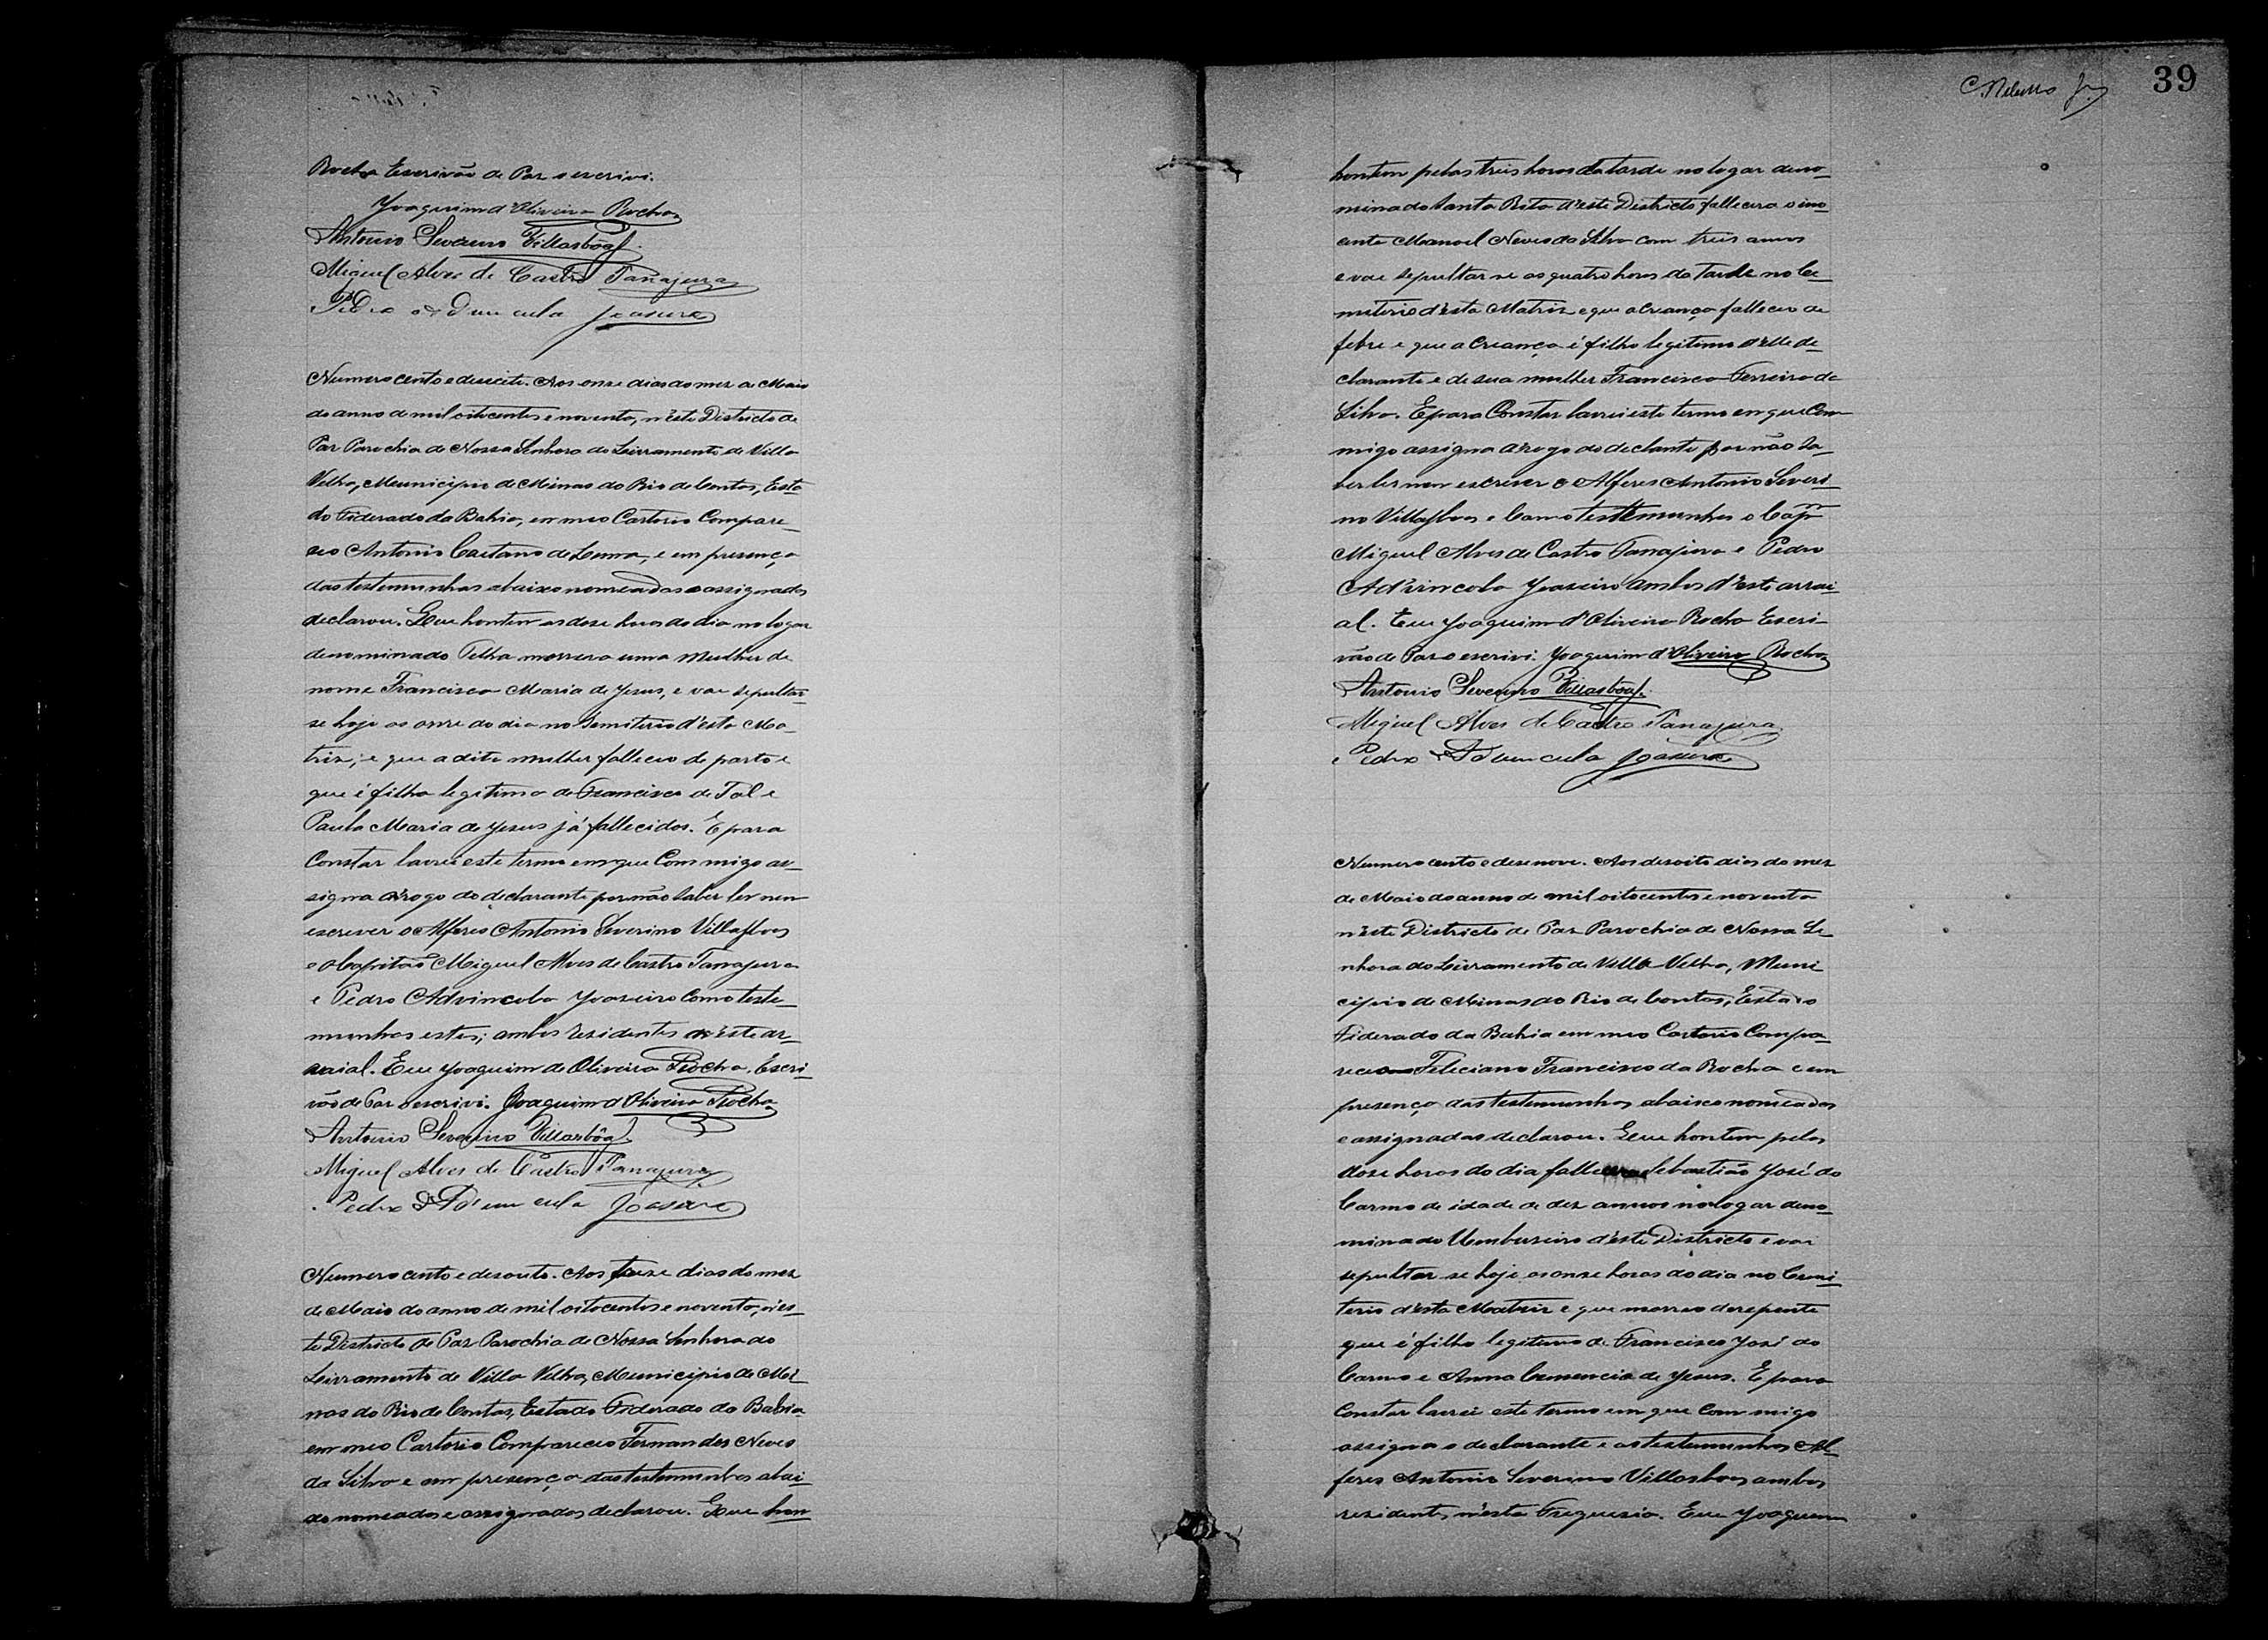 Rocha Escrivão de Paz o escrivi.
Joaquim d'Oliveira Rocha
Antonio Severino Villasbôas
Miguel Alves de Castro Tanajura
Pedro Advincula Joaseiro
Numero cento e desecete. Aos onze dias do mez de Maio
do anno de mil oitocentos e noventa, n'este Districto de
Paz Parochia de Nossa Senhora do Livramento de Villa
Velha, Municipio de Minas do Rio de Contas, Esta-
do Federado da Bahia, em meo Cartorio Compare-
ceo Antonio Caetano de Lemos, e em presença
das testemunhas abaixo nomeadas e assignados
declarou. Que hontem as dose horas do dia no logar
denominado Telha morrera uma mulher de
nome Francisca Maria de Jesus, e vae sepultar-
se hoje as onze do dia no Semiterio d'esta Ma-
triz, e que a dita mulher falleceo de parto e
que é filha legitima de Francisco de Tal e
Paula Maria de Jesus já fallecidos. E para
Constar lavrei este termo em que Com migo as-
signa arogo do declarante por não saber ler nem
escrever o Alferes Antonio Severino Villasboas
e o Capitão Miguel Alves de Castro Tanajura
e Pedro Advincola Joaseiro Como teste-
munhas estes; ambos residentes n'este ar-
raial. Eu Joaquim de Oliveira Rocha, Escri-
vão de Paz o escrivi. Joaquim d'Oliveira Rocha
Antonio Severino Villasbôas
Miguel Alves de Castro Tanajura
Pedro Advincula Joaseiro
Numero cento e desouto. Aos treze dias do mez
de Maio do anno de mil oitocentos e noventa, n'es-
te Districto de Paz Parochia de Nossa Senhora do
Livramento de Villa Velha, Municipio de Mi-
nas do Rio de Contas, Estado Federado da Bahia
em meo Cartorio Compareceo Fernandes Neves
da Silva e em presença das testemunhas abai-
xo nomeados e assignados declarou. Que hon
39
hontem pelas treis horas da tarde no logar deno-
minado Santa Rita d'este Districto fallecera o ino-
cente Manoel Neves da Silva com treis annos
e vae sepultar se as quatro horas da tarde no Ce-
miterio d'esta Matriz e que a Creança falleceo de
febre e que a Creança é filho legitimo d'elle de-
clarante e de sua mulher Francisca Ferreira da
Silva. E para Constar lavrei este termo em que Com
migo assigna arogo do declante por não sa-
ber ler nem escrever o Alferes Antonio Severi-
no Villasboas e Como testtemunhas o Capm
Miguel Alves de Castro Tanajura e Pedro
Ad'vincola Joaseiro ambos d'este arrai-
al. Eu Joaquim d'Oliveira Rocha Escri-
vão de Paz o escrivi. Joaquim d'Oliveira Rocha
Antonio Severino Villasbôas
Miguel Alves de Castro Tanajura
Pedro Advincula Joaseiro
Numero cento e desenove. Aos desoito dias do mez
de Maio do anno de mil oitocentos e noventa
n'este Districto de Paz Parochia de Nossa Se-
nhora do Livramento de Villa Velha, Muni
cipio de Minas do Rio de Contas, Estado
Federado da Bahia em meo Cartorio Compa-
receo Feliciano Francisco da Rocha e em
presença das testemunhas abaixo nomeados
e assignadas declarou. Que hontem pelas
dose horas do dia fallecera Sebastião José do
Carmo de idade de dez annos no logar deno-
minado Umburseiro d'este Districto e vai
sepultar se hoje as onse horas do dia no Cemi-
terio d'esta Matriz e que morreo derepente
que é filho legitimo de Francisco José do
Carmo e Anna Cemencia de Jesus. E para
Constar lavrei este termo em que Com migo
assigna o declarante e as testemunhas Al-
feres Antonio Severino Villasboas ambos
residentes n'esta Freguesia. Eu Joaquim